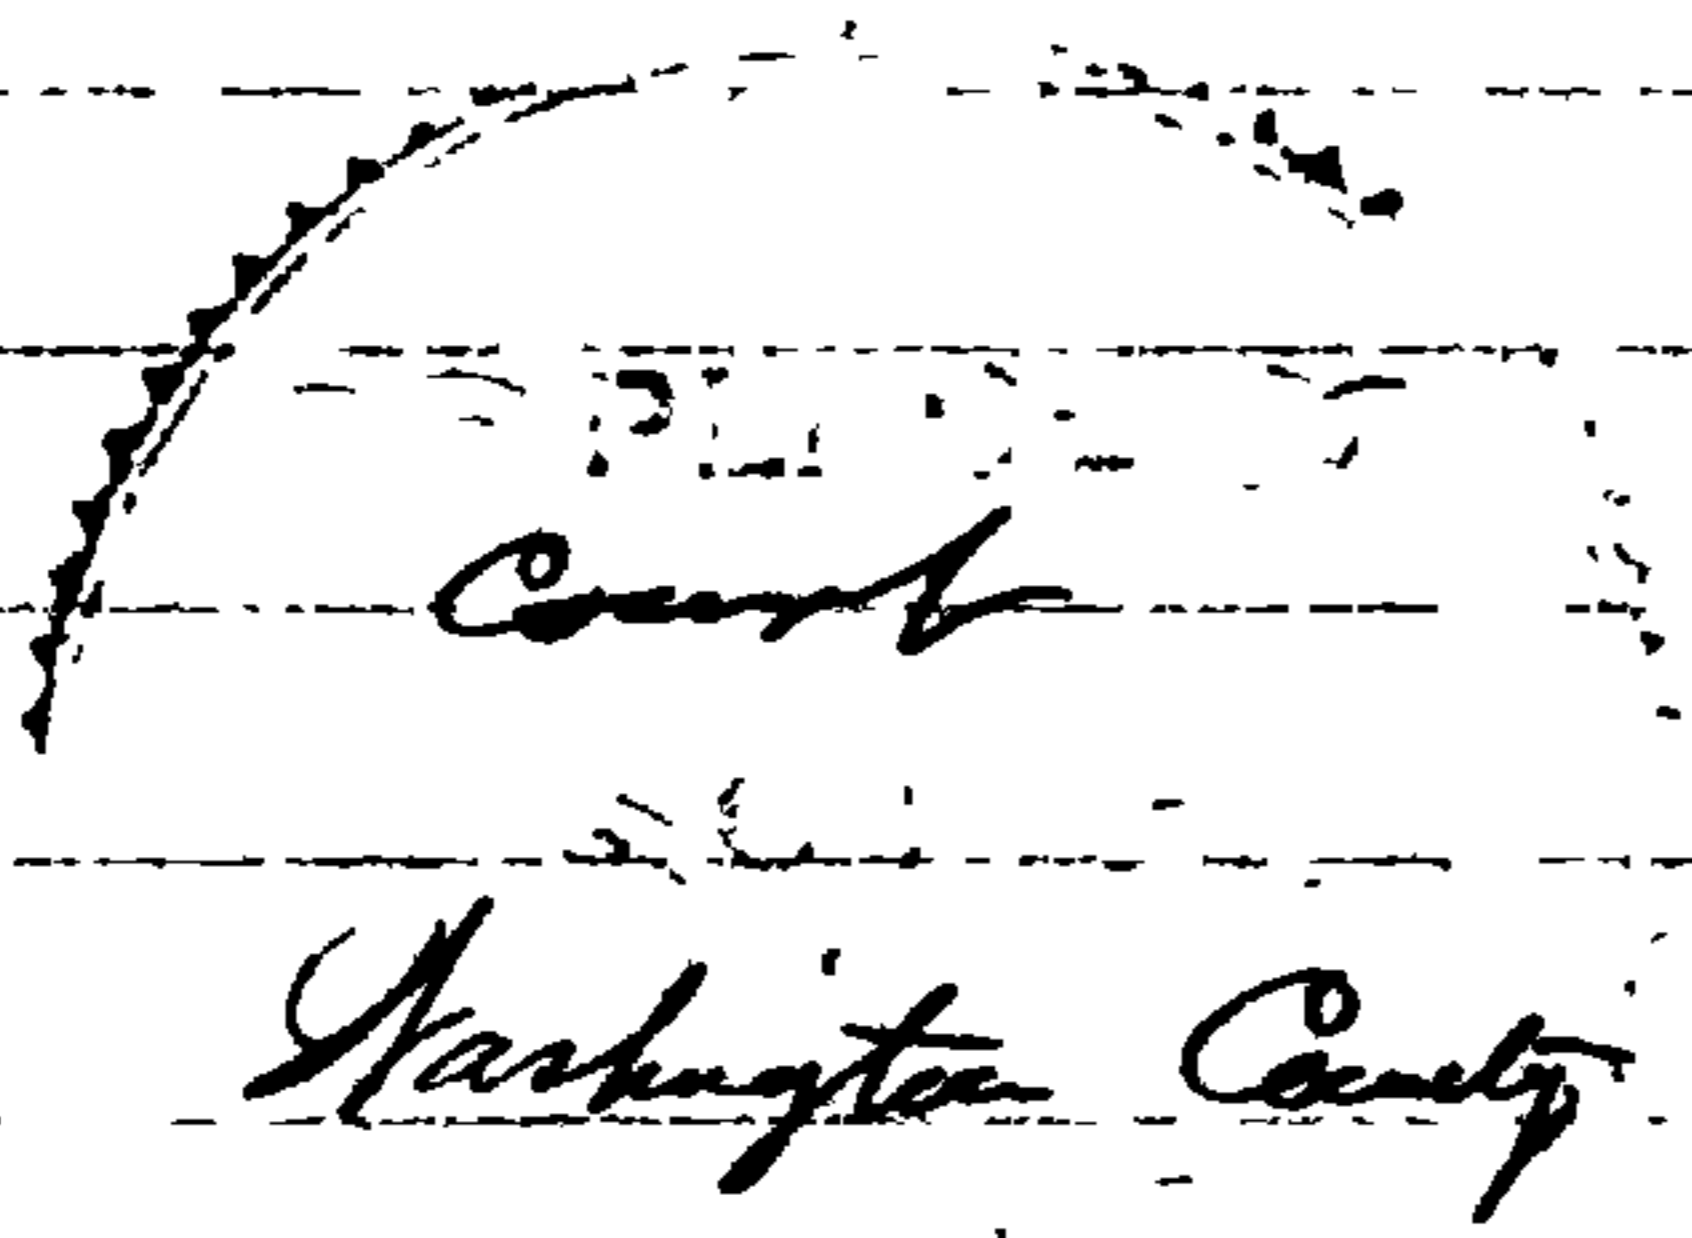 Court
Washington County